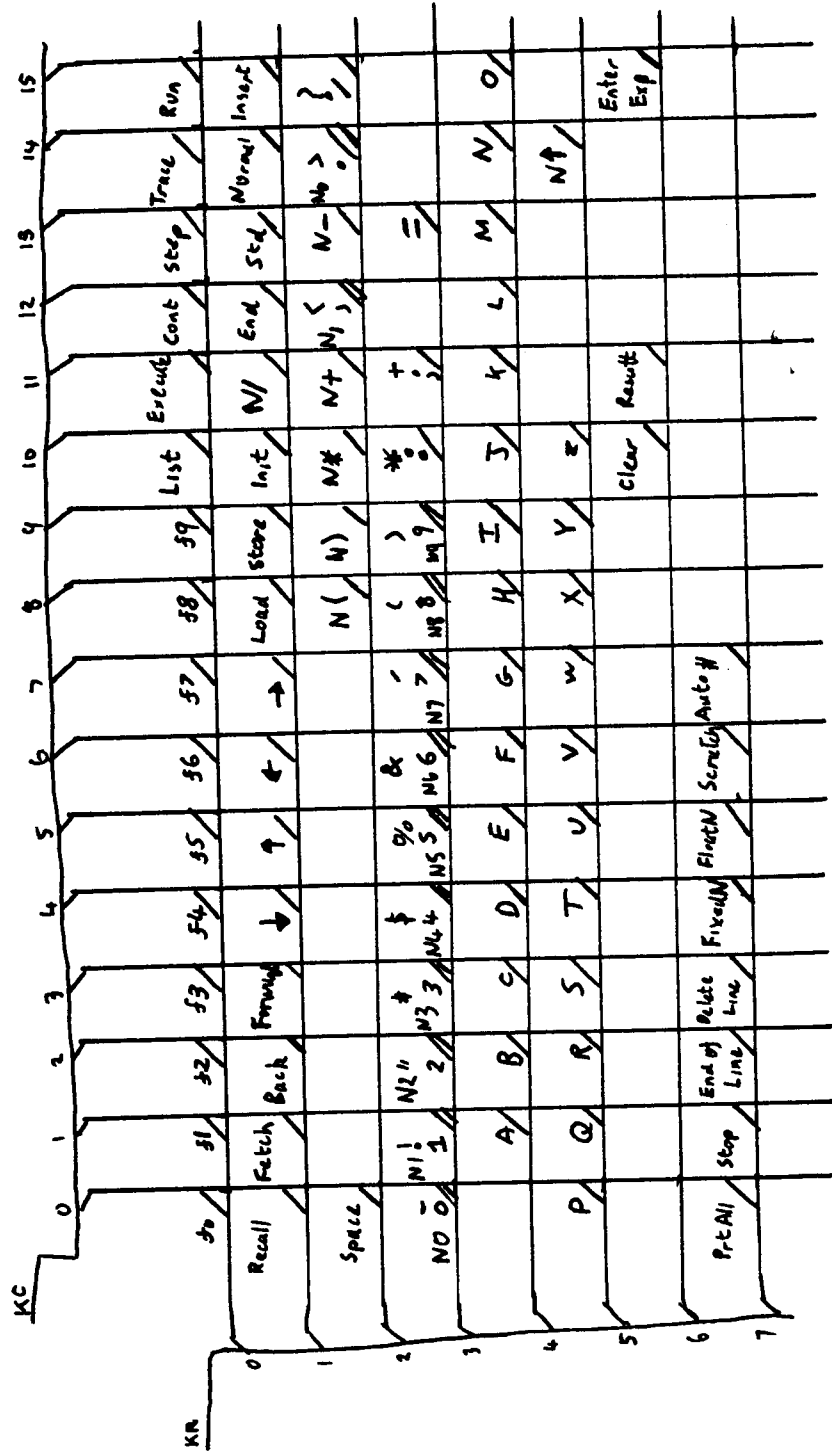 KC
0 1 2 3 4 5 6 7 8 9 10 11 12 13 14 15
KR
f0 f1 f2 f3 f4 f5 f6 f7 f8 f9 List Execute Cont Step Trace Run
0 Recall Fetch Back Forward ↓ ↑ ← → Load Store Init N/ End Std Normal Insert
1 Space N( N) N* N+ N, < , N- N. > .
2 N0 _ 0 N1 ! 1 N2 " 2 N3 # 3 N4 $ 4 N5 % 5 N6 & 6 N7 ' 7 N8 ( 8 N9 ) 9 * : + ; =
3 A B C D E F G H I J K L M N O
4 P Q R S T U V W X Y Z N↑
5 Clear Result Enter Exp
6 PrtAll Stop End of Line Delete Line FixedN FloatN Scratch Auto#
7